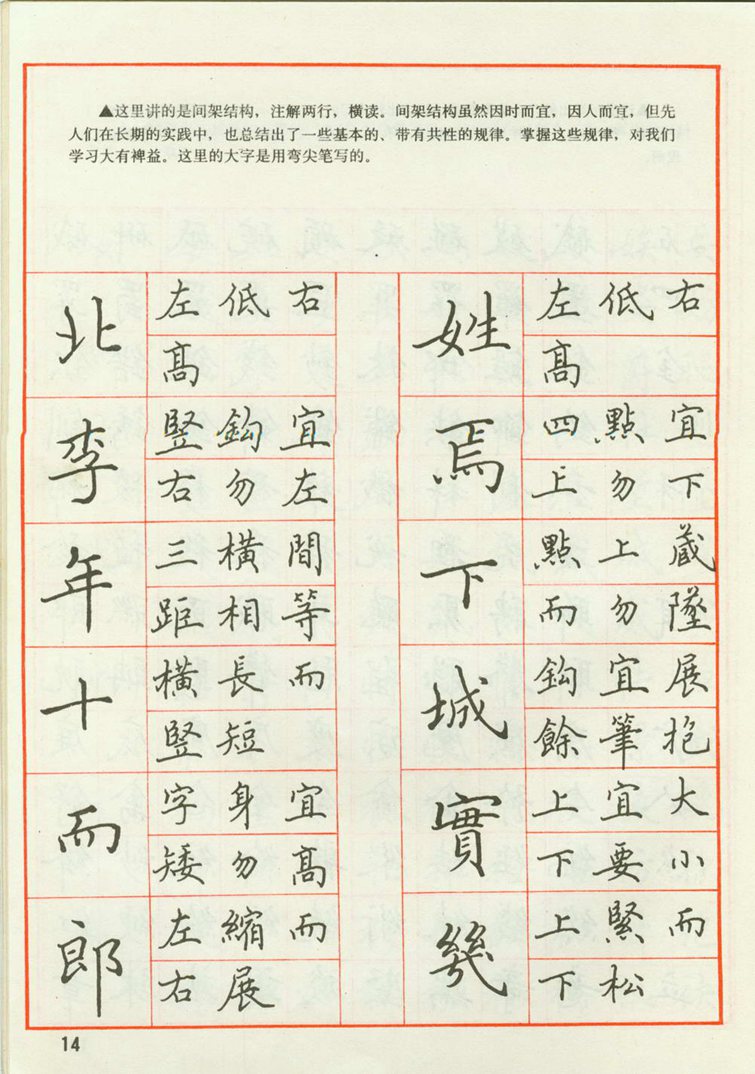 ▲这里讲的是间架结构，注解两行，横读。间架结构虽然因时而宜，因人而宜，但先
人们在长期的实践中，也总结出了一些基本的、带有共性的规律。掌握这些规律，对我们
学习大有裨益。这里的大字是用弯尖笔写的。
北
左低右
高
李
竖鈎宜
右勿左
年
三橫間
距相等
十
橫長而
竖短
而
字身宜
矮勿高
郎
左縮而
右展
姓
左低右
高
焉
四點宜
上勿下
下
點上蔵
而勿墜
城
鈎宜展
餘筆抱
實
上宜大
下要小
幾
上緊而
下松
14